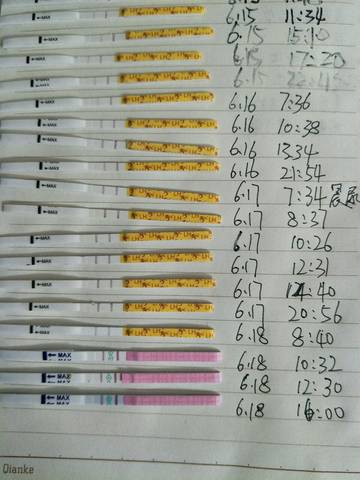 6.15 11:34
←MAX LH 6.15 15:10
←MAX LH 6.15 17:20
←MAX LH 6.15
←MAX LH 6.16 7:36
←MAX LH 6.16 10:38
←MAX LH 6.16 13:34
←MAX LH 6.16 21:54
←MAX LH 6.17 7:34 晨尿
←MAX LH 6.17 8:37
←MAX LH 6.17 10:26
←MAX LH 6.17 12:31
←MAX LH 6.17 14:40
←MAX LH 6.17 20:56
←MAX LH 6.18 8:40
←MAX 6.18 10:32
←MAX 6.18 12:30
←MAX 6.18 16:00
Dianke